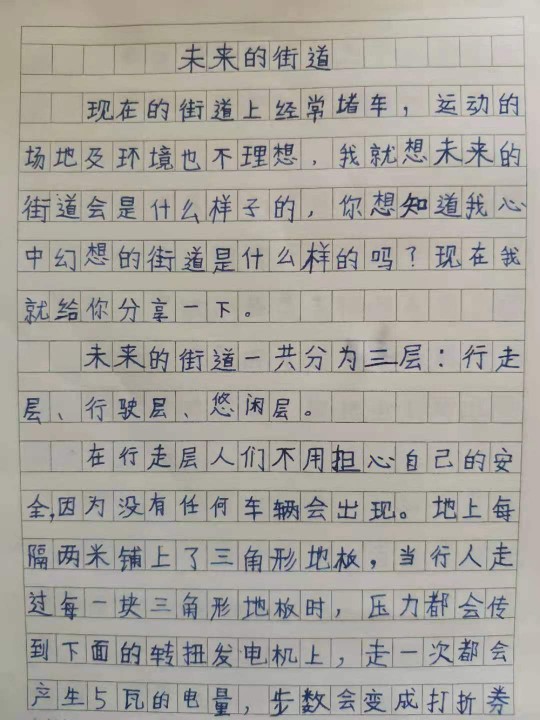 未来的街道
现在的街道上经常堵车，运动的
场地及环境也不理想，我就想未来的
街道会是什么样子的，你想知道我心
中幻想的街道是什么样的吗？现在我
就给你分享一下。
未来的街道一共分为三层：行走
层、行驶层、悠闲层。
在行走层人们不用担心自己的安
全,因为没有任何车辆会出现。地上每
隔两米铺上了三角形地板，当行人走
过每一块三角形地板时，压力都会传
到下面的转扭发电机上，走一次都会
产生5瓦的电量，步数会变成打折券